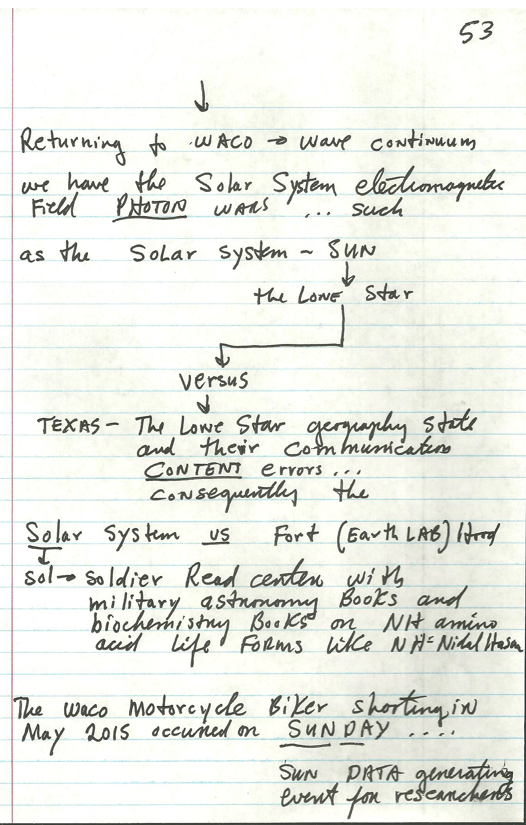 53
↓
Returning to WACO → wave continuum
we have the Solar System electromagnetic
Field PHOTON WARS ... such
as the Solar System ~ SUN
↓
the Lone Star
↓
versus
↓
TEXAS - The Lone Star geography state
and their communication
CONTENT errors ...
consequently the
Solar System vs Fort (Earth LAB) Hood
↓
sol → soldier Read center with
military astronomy Books and
biochemistry Books on NH amino
acid life forms like NH = Nidal Hasan
The Waco Motorcycle Biker shooting in
May 2015 occurred on SUNDAY ....
SUN DATA generating
event for researchers